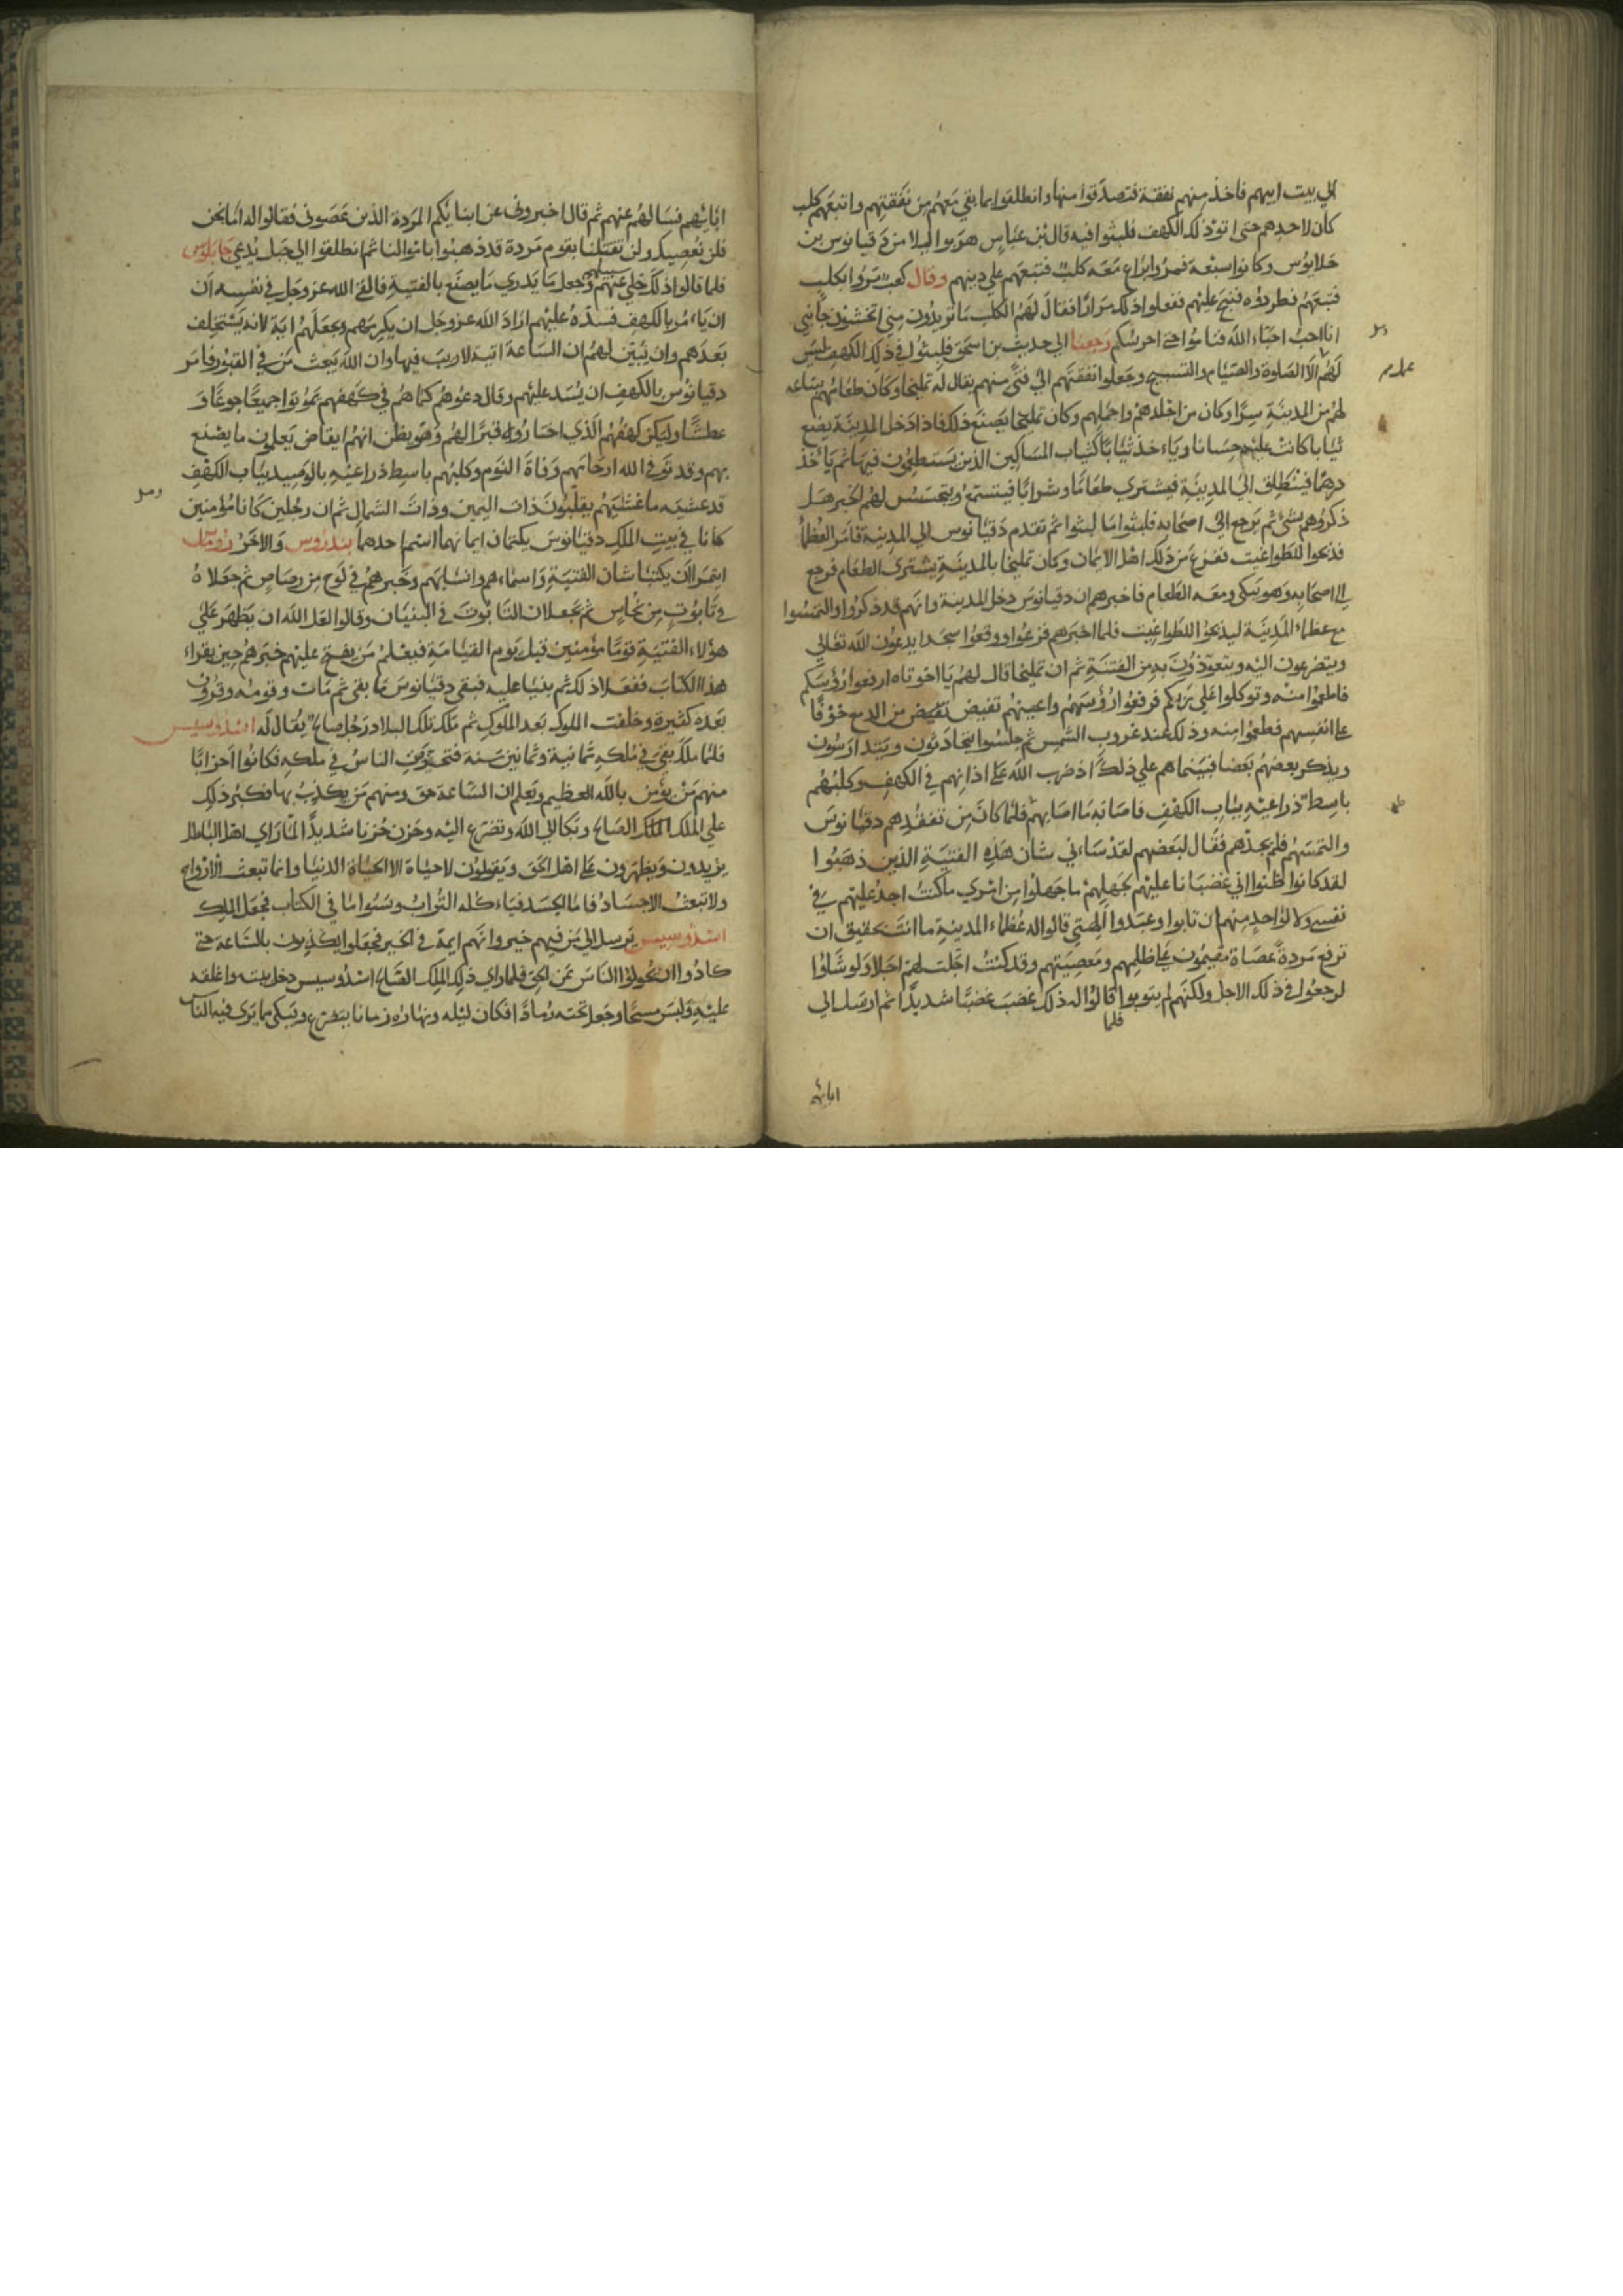 الي بيت ابيهم فاخذ منهم نفقة فتصدقوا منها وانطلقوا بما بقي معهم من نفقتهم واتبعهم كلب
كان لاحدهم حتى اتوا ذلك الكهف فلبثوا فيه قال ابن عباس هربوا ليلا من دقيانوس بن
حلايوس وكانوا سبعة فمروا براع معه كلب فتبعهم علي دينهم وقال كعب مروا بكلب
فتبعهم فطردوه فنبح عليهم ففعلوا ذلك مرارا فقال لهم الكلب ما تريدون مني اتخشون جانبي
انا احب احباء الله فناموا حتى احرسكم رجعنا الي حديث بن اسحق فلبثوا في ذلك الكهف ليس
لهم الا الصلوة والصيام والتسبيح وجعلوا نفقتهم الي فتى منهم يقال له تمليخا وكان طعامهم يبتاعه
لهم من المدينة سرا وكان من اجلدهم واجملهم وكان تمليخا يصنع ذلك فاذا دخل المدينة يضع
ثيابا كانت عليه حسانا وياءخذ ثيابا كثياب المساكين الذين يستطعمون فيها ثم ياخذ
درهما فينطلق الي المدينة فيشتري طعاما وشرابا فيتسمع ويتجسس لهم الخبر هل
ذكروهم بشئ ثم يرجع الي اصحابه فلبثوا ما لبثوا ثم تقدم دقيانوس الي المدينة فامر العظماء
فذبحوا للطواغيت ففزع من ذلك اهل الايمان وكان تمليخا بالمدينة يشتري الطعام فرجع
الي اصحابه وهو يبكي ومعه الطعام فاخبرهم ان دقيانوس دخل المدينة وانهم قد ذكروا والتمسوا
مع عظماء المدينة ليذبحوا للطواغيت فلما اخبرهم فزعوا ووقعوا سجدا يدعون الله تعالي
ويتضرعون اليه ويتعوذون به من الفتنة ثم ان تمليخا قال لهم يا اخوتاه ارفعوا رؤسكم
فاطعموا منه وتوكلوا علي ربكم فرفعوا رؤسهم واعينهم تفيض من الدمع خوفا
على انفسهم فطعموا منه وذلك عند غروب الشمس ثم جلسوا يتحادثون ويتدارسون
ويذكر بعضهم بعضا فبينما هم علي ذلك اذ ضرب الله علي اذانهم في الكهف وكلبهم
باسط ذراعيه بباب الكهف فاصابه ما اصابهم فلما كان من تفقدهم دقيانوس
والتمسهم فلم يجدهم فقال لبعضهم لقد ساءني شان هذه الفتية الذين ذهبوا
لقد كانوا ظنوا اني غضبانا عليهم بجهلهم ما جهلوا من امري ما كنت اجد عليهم في
نفسي ولا لواحد منهم ان تابوا وعبدوا الهتي قالوا له عظماء المدينة ما انت بحقيق ان
ترفع مردة عصاة مقيمون علي ظلمهم ومعصيتهم وقد كنت اجلت لهم اجلا ولو شاؤا
لرجعوا في ذلك الاجل ولكنهم لم يتوبوا فلما قالوا له ذلك غضب غضبا شديدا ثم ارسل الي
ابائهم
ابائهم فسالهم عنهم ثم قال اخبروني عن ابنائكم المردة الذين عصوني فقالوا له اما نحن
فلن نعصيك ولن تقتلنا بقوم مردة قد ذهبوا باموالنا ثم انطلقوا الي جبل يدعي
فلما قالوا ذلك خلي سبيلهم وجعل ما يدري ما يصنع بالفتية فالقي الله عز وجل في نفسه ان
ان ياءمر بالكهف فسده عليهم اراد الله عز وجل ان يكرمهم ويجعلهم اية لانه يستخلف
بعدهم وان يبين لهم ان الساعة اتية لا ريب فيها وان الله يبعث من في القبور فامر
دقيانوس بالكهف ان يسد عليهم وقال دعوهم كما هم في كهفهم يموتوا جميعا جوعا و
عطشا وليكن كهفهم الذي اختاروه قبرا لهم وهو يظن انهم ايقاض يعلمون ما يصنع
بهم وقد توفي الله ارحاتهم وفاة النوم وكلبهم باسط ذراعيه بالوصيد بباب الكهف
قد غشيه ما غشيهم يقلبون ذات اليمين وذات الشمال ثم ان رجلين كانا مؤمنين
كانا في بيت الملك دقيانوس يكتمان ايمانهما اسم احدهما بندروس والاخر
ايتمرا ان يكتبا شان الفتية واسماءهم وانسابهم وخبرهم في لوح من رصاص ثم جعلاه
في تابوت من نحاس ثم يجعلان التابوت في البنيان وقالوا لعل الله ان يظهر علي
هؤلاء الفتية قوما مؤمنين قبل يوم القيامة فيعلم من يفتح عليهم خبرهم حين يقراء
هذا الكتاب ففعلا ذلك ثم بنيا عليه فبقي دقيانوس ما بقي ثم مات وقومه وقرون
بعده كثيرة وخلفت الملوك بعد الملوك ثم ملك تلك البلاد رجل صالح يقال له اسدوسيس
فلما ملك بقي في ملكه ثمانية وثمانين سنة فتحزبت الناس في ملكه فكانوا احزابا
منهم من يؤمن بالله العظيم ويعلم ان الساعة حق ومنهم من يكذب بها فكبر ذلك
علي الملك الصالح وبكا الي الله وتضرع اليه وحزن حزنا شديدا لما راي اهل الباطل
يزيدون ويظهرون علي اهل الحق ويقولون لا حياة الا الحياة الدنيا وانما تبعث الارواح
ولا تبعث الاجساد فاما الجسد فياءكله التراب ونسوا ما في الكتاب فجعل الملك
اسدوسيس يرسل الي من فيهم خير وانهم ايمة في الخير فجعلوا يكذبون بالساعة حتى
كادوا ان يحولوا الناس عن الحق فلما راي ذلك الملك الصالح اسدوسيس دخل بيته واغلقه
عليه ولبس مسحا وجعل تحته رمادا فكان ليله ونهاره زمانا يتضرع ويبكي مما يري فيه الناس